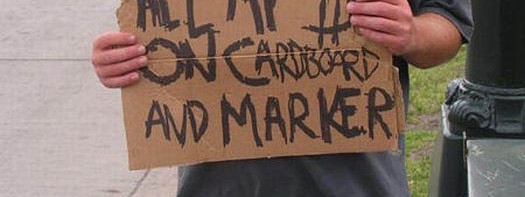 ALL MY
ON CARDBOARD
AND MARKER